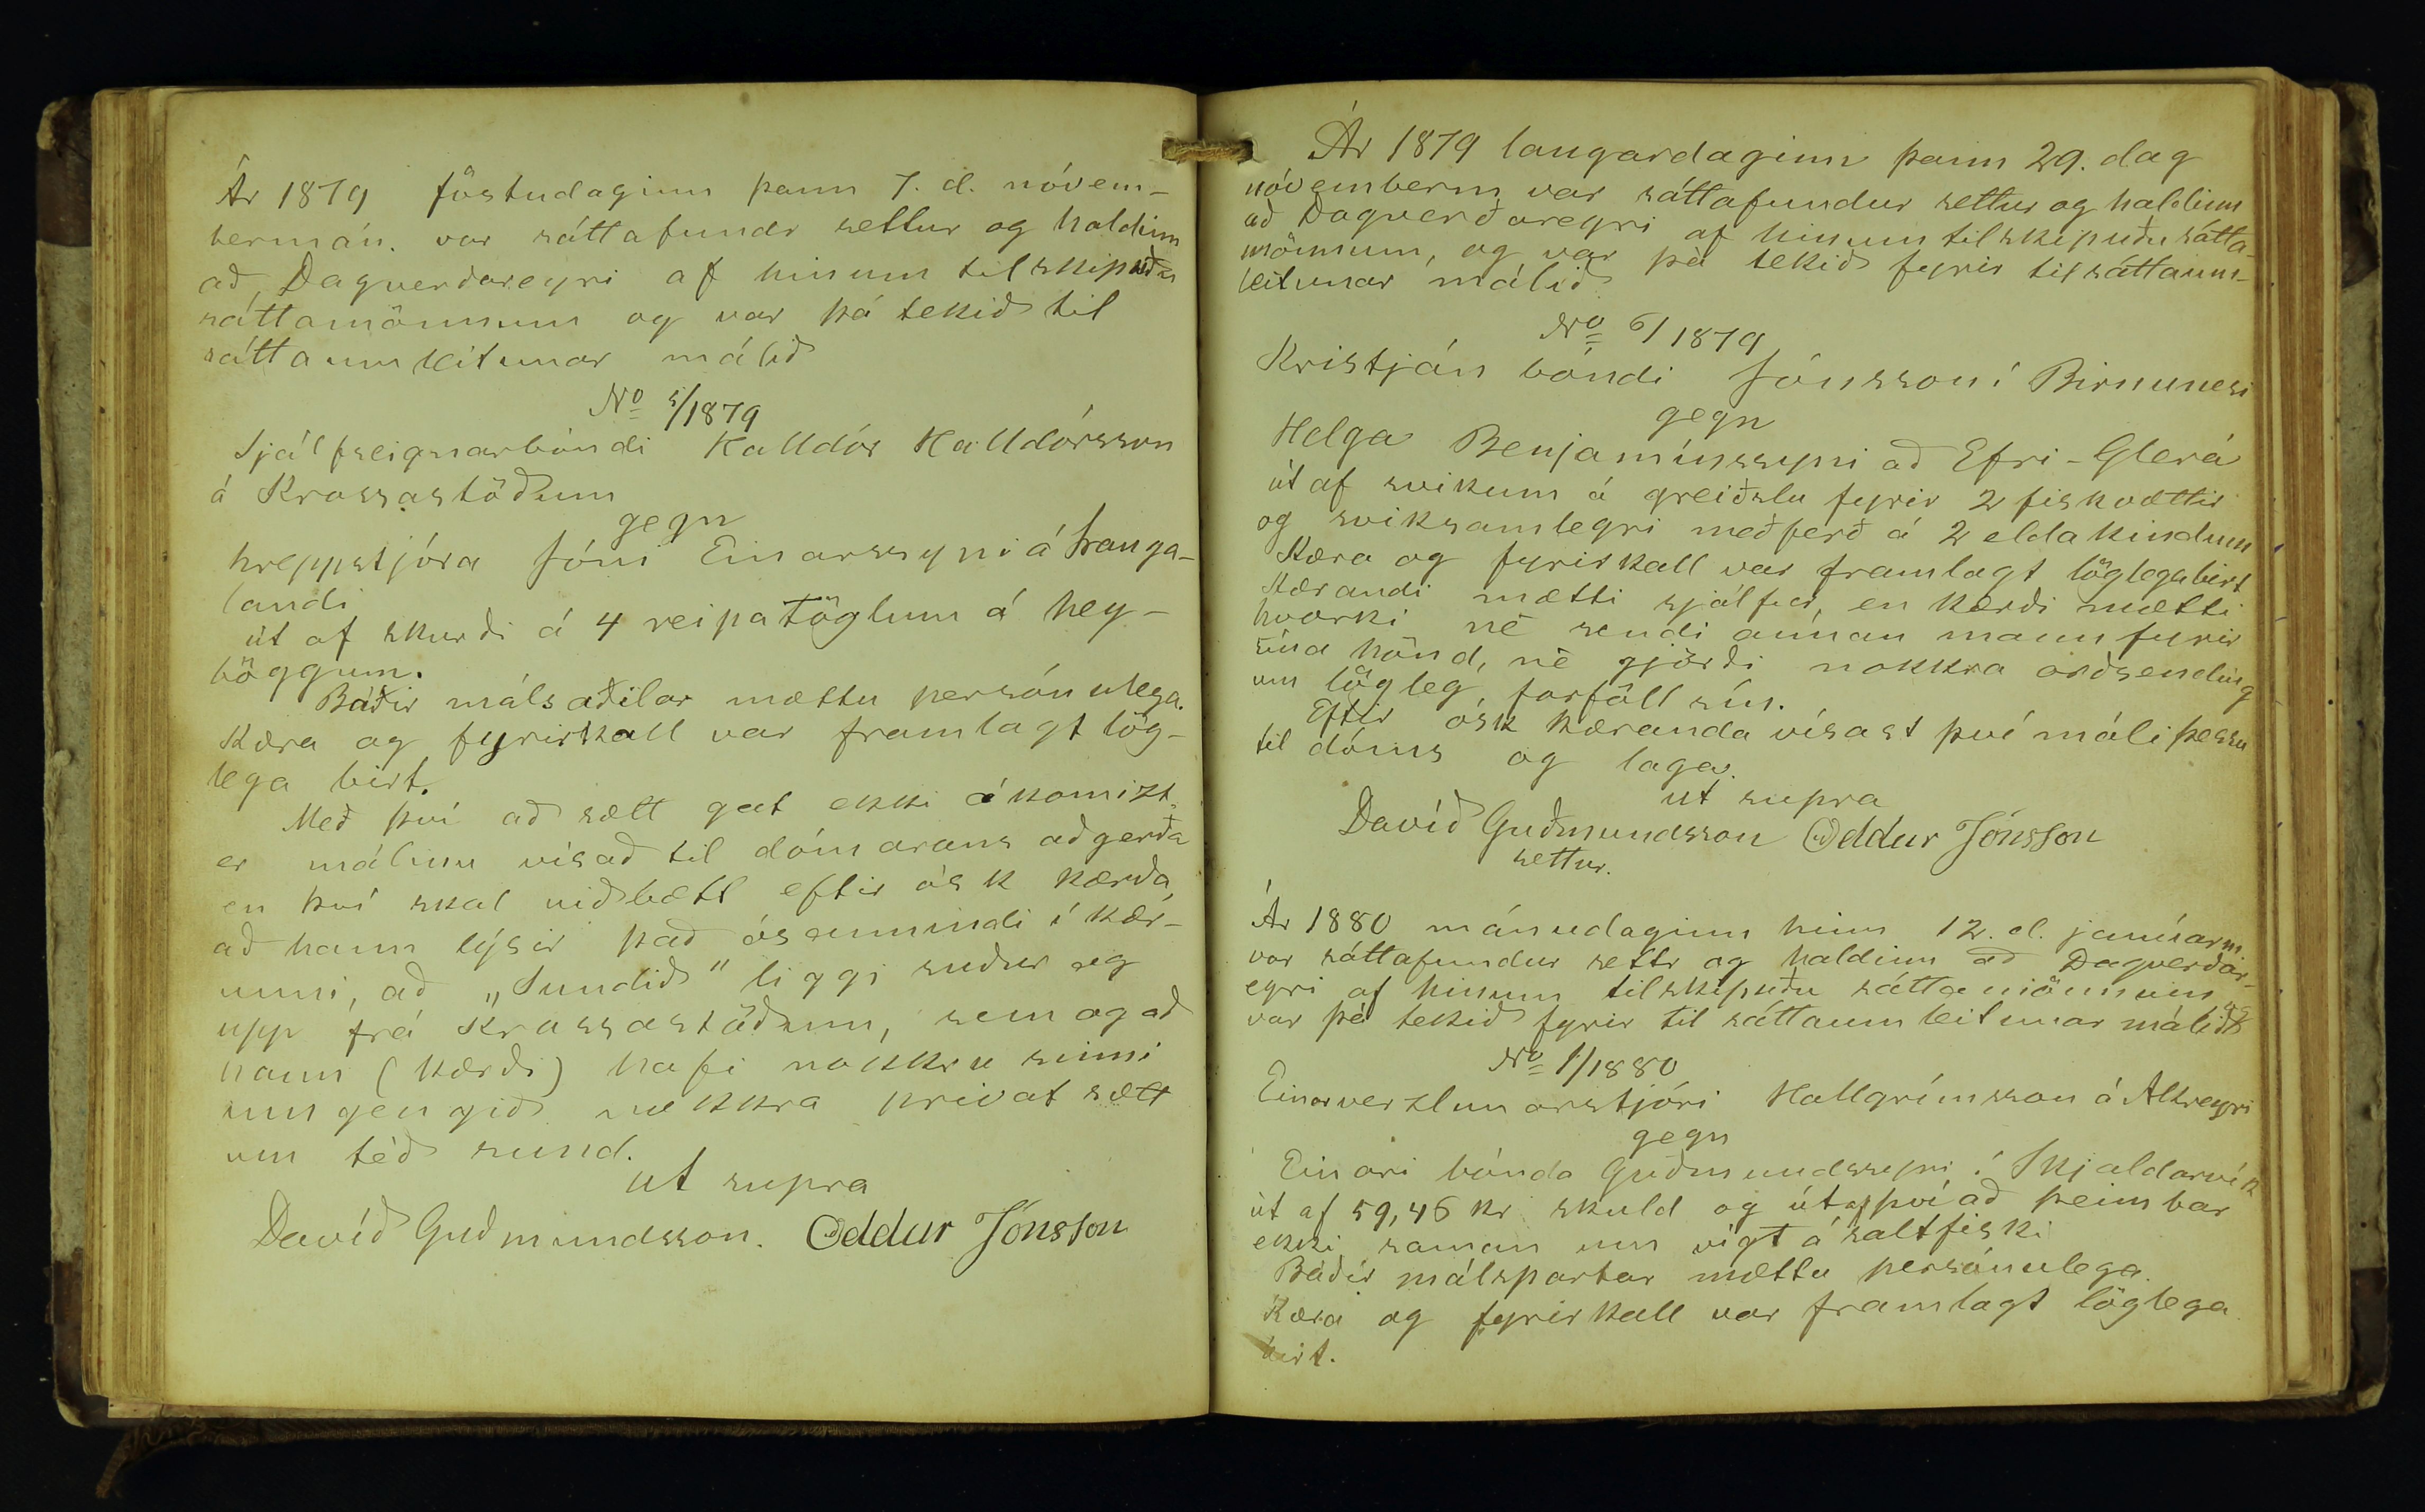 Ár 1879 föstudaginn þann 7. d. nóvem-
bermán. var sáttafundr settur og haldinn
að Dagverðareyri af hinum tilskipuðu
sáttamönnum og var þá tekið til
sáttaumleitunar málið
No 5/1879
Sjálfseignarbóndi Halldór Halldórsson
á Krossastöðum
gegn
hreppstjóra Jóni Einarssyni á Þranga-
landi
út af skurði á 4 reipatöglum á hey-
böggum.
Báðir málsaðilar mættu persónulega.
Kæra og fyrirkall var framlagt lög-
lega birt.
Með því að sætt gat ekki ákomizt,
er málinu vísað til dómarans aðgerða
en því skal viðbætt eftir ósk kærða,
að hann lýsir það ósannindi í kær-
unni, að „Sundið" liggi suður og
upp frá Krossastöðum, sem og að
hann (kærði) hafi nokkru sinni
umgengið nokkra privat sætt
um téð sund.
ut supra
Davíð Guðmundsson. Oddur Jónsson
Ár 1879 laugardaginn þann 29. dag
nóvemberm. var sáttafundur settur og haldinn
að Dagverðareyri af hinum tilskipuðu sátta-
mönnum, og var þá tekið fyrir til sáttaum-
leitunar málið
No 6/1879
Kristján bóndi Jónsson í Birnunesi
gegn
Helga Benjamínssyni að Efri-Glerá
út af svikum á greiðslu fyrir 2 fiskvættir
og sviksamlegri meðferð á 2 eldakindum
Kæra og fyrirkall var framlagt löglega birt
Kærandi mætti sjálfur, en kærði mætti
hvorki né sendi annan mann fyrir
sína hönd, né gjörði nokkra orðsending
um lögleg forföll sín.
Eftir ósk kæranda vísast því máli þessu
til dóms og laga.
ut supra
Davíð Guðmundsson Oddur Jónsson
settur.
Ár 1880 mánudaginn hinn 12. d. janúarm.
var sáttafundur settr og haldinn að Dagverðar-
eyri af hinum tilskipuðu sáttamönnum og
var þá tekið fyrir til sáttaumleitunar málið
No 1/1880
Einar verzlunarstjóri Hallgrímsson á Akreyri
gegn
Einari bónda Guðmundssyni í Skjaldarvík
út af 59,46 kr skuld og út af því að þeim bar
ekki saman um vigt á saltfiski
Báðir málspartar mættu persónulega.
Kæra og fyrirkall var framlagt löglega
birt.